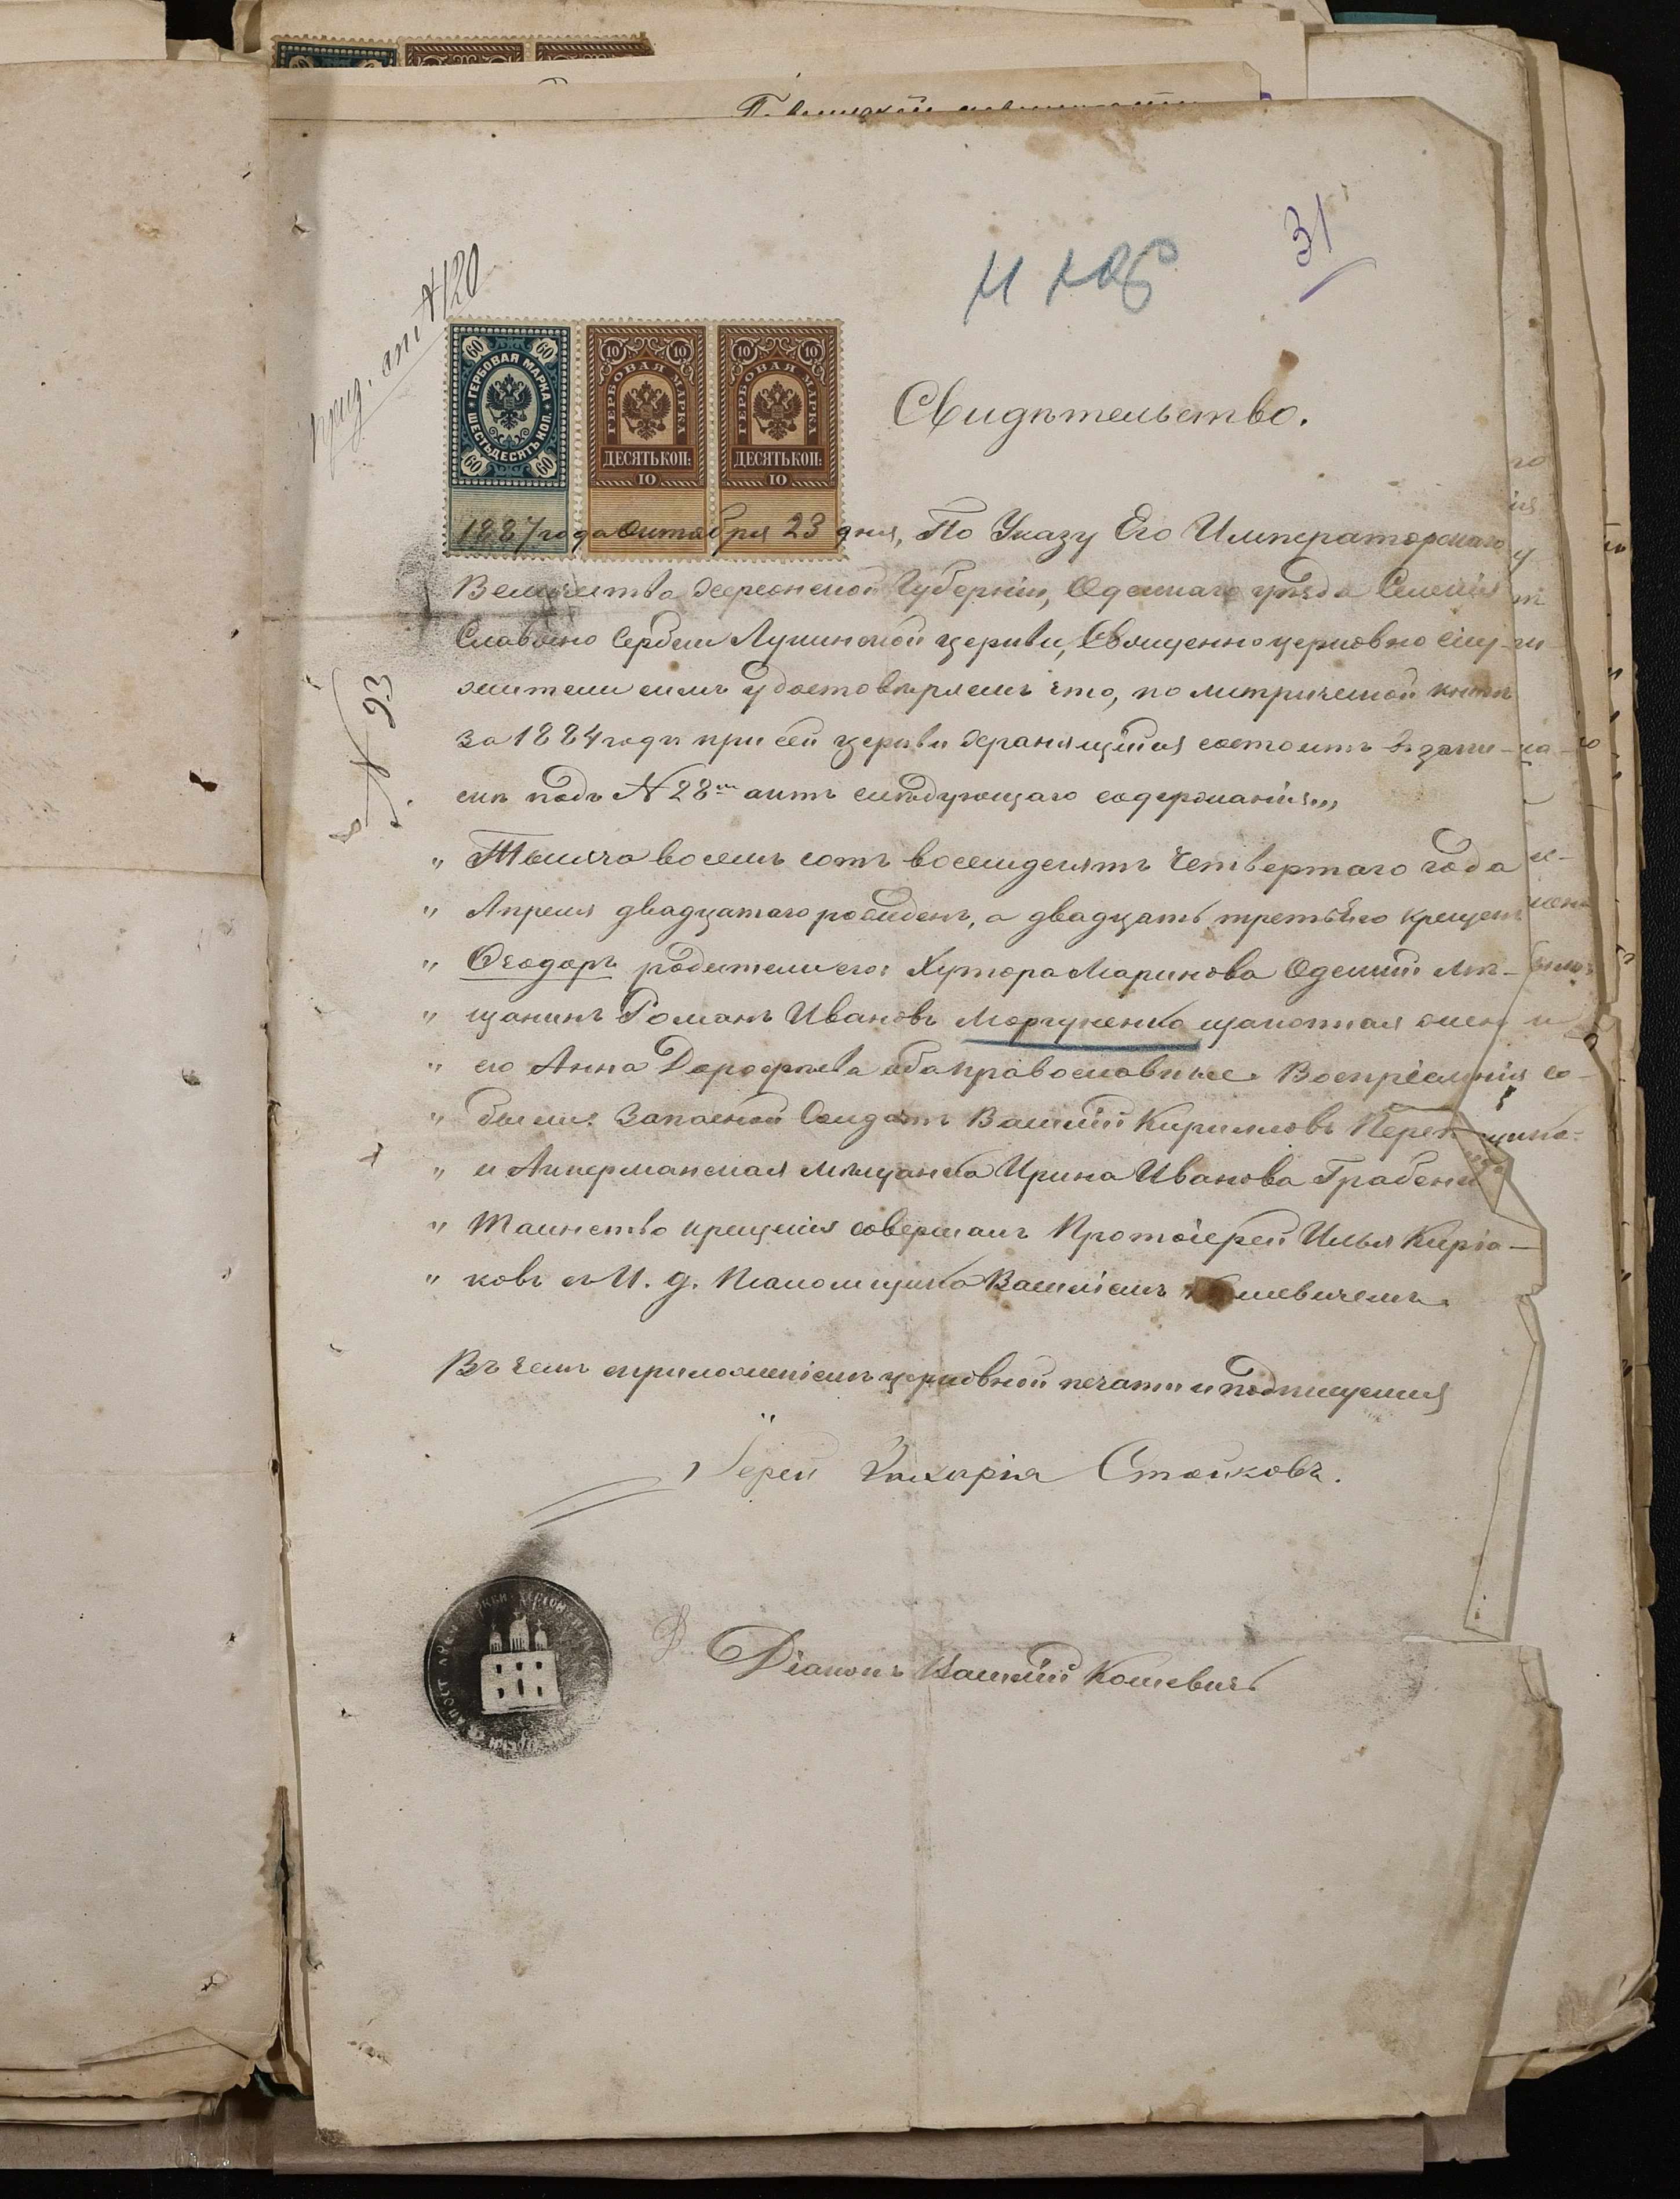 31
№ 120
60 60
ГЕРБОВАЯ МАРКА
ШЕСТЬДЕСЯТЬ КОП.
60 60
10 10
ГЕРБОВАЯ МАРКА
ДЕСЯТЬ КОП:
10
10 10
ГЕРБОВАЯ МАРКА
ДЕСЯТЬ КОП:
10
Свидѣтельство.
1887 года Октября 23 дня, По Указу Его Императорскаго
Величества Херсонской Губерніи, Одесскаго уѣзда Селенія
Славяно Сербки Лукинской церкви, Священно церковно слу-
жители симъ удостовѣряемъ что, по метрической книгѣ
за 1884 годъ при сей церкви хранящійся состоитъ въ запи-
си подъ № 28 актъ слѣдующаго содержанія,,,
№ 93
„ Тысяча восемь сотъ восемдесятъ четвертаго года
„ Апреля двадцатаго рожденъ, а двадцать третьяго крещенъ
„ Ѳеодоръ родители его: Хутора Маринова Одесскій мѣ-
„ щанинъ Романъ Ивановъ Моргуненко законная жена
„ его Анна Дорофѣева оба православные. Воспріемники
„ были: Запасной Солдатъ Василій Кириловъ
„ и Аккерманская мѣщанка Ирина Иванова
„ Таинство крещенія совершалъ Протоіерей Илья Киріа-
„ ковъ съ И. д. Псаломщика Василіемъ
Въ чемъ съ приложеніемъ церковной печати и подписуемся
Іерей Захарія Стойковъ.
Діаконъ Василій Кошевичъ